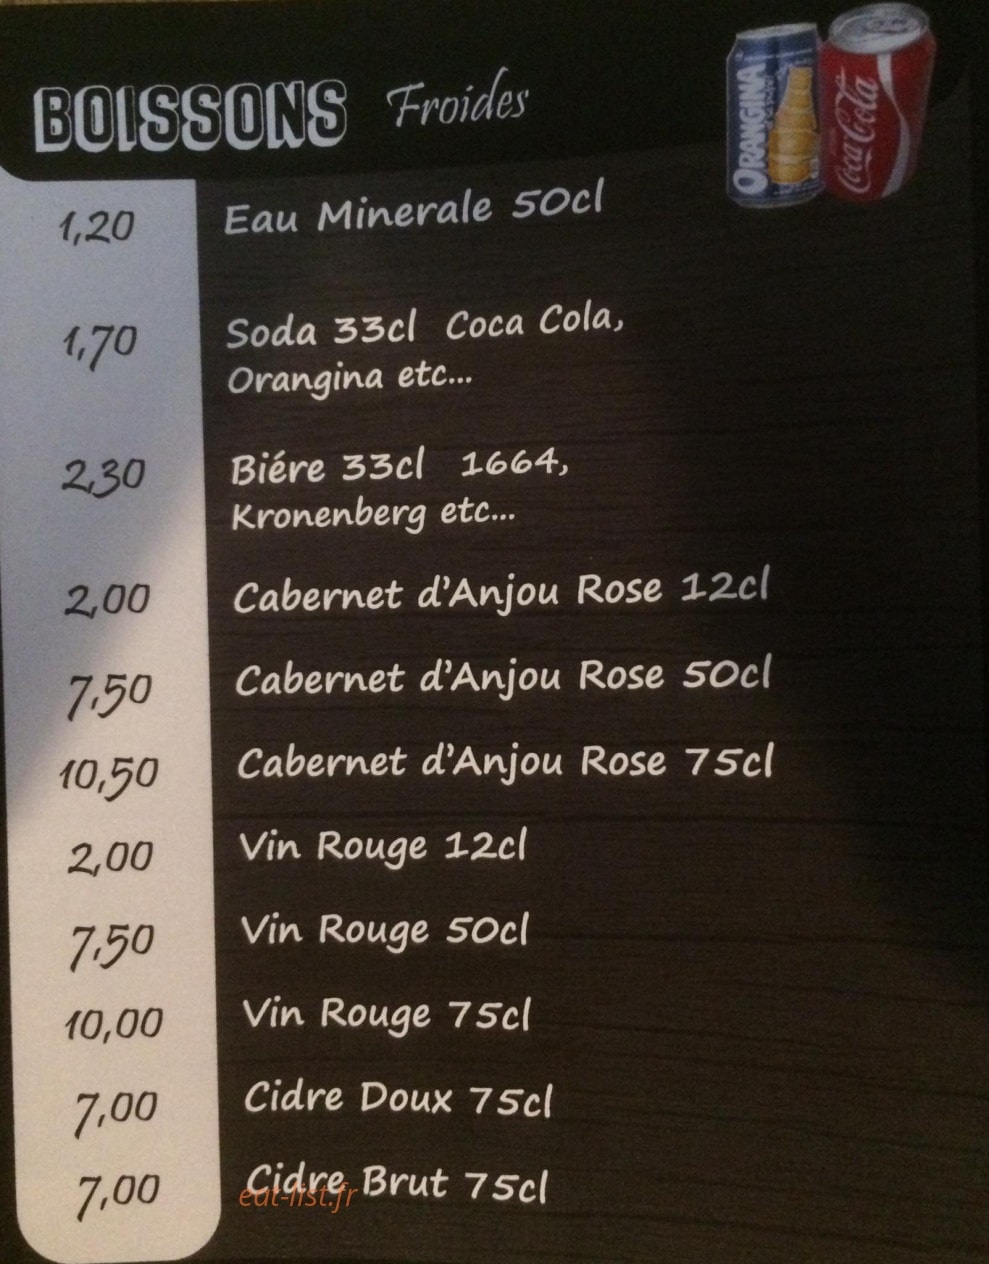 BOISSONS Froides
ORANGINA
Coca-Cola
1,20 Eau Minerale 50cl
1,70 Soda 33cl Coca Cola,
Orangina etc...
2,30 Biére 33cl 1664,
Kronenberg etc...
2,00 Cabernet d'Anjou Rose 12cl
7,50 Cabernet d'Anjou Rose 50cl
10,50 Cabernet d'Anjou Rose 75cl
2,00 Vin Rouge 12cl
7,50 Vin Rouge 50cl
10,00 Vin Rouge 75cl
7,00 Cidre Doux 75cl
7,00 Cidre Brut 75cl
eat-list.fr